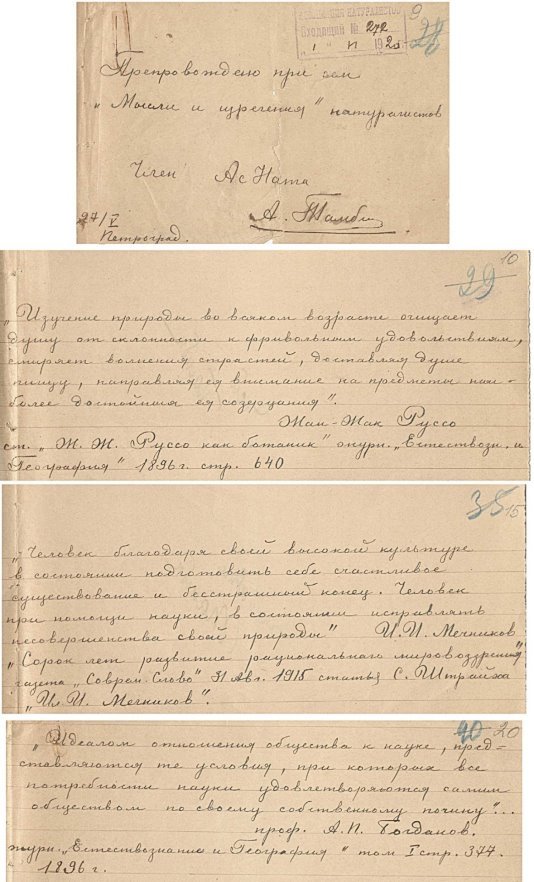 9
28
Входящий № 272
Препровождаю при сем
„Мысли и изречения" натуралистов
Член Ас Ната
А. Тамби
27/V
Петроград.
10
29
„Изучение природы во всяком возрасте очищает
душу от склонности к фривольным удовольствиям,
смиряет волнения страстей, доставляя душе
пищу, направляя ея внимание на предметы наи-
более достойныя ея созерцания".
Жан-Жак Руссо
ст. „Ж. Ж. Руссо как ботаник" журн. „Естествозн. и
География" 1896 г. стр. 640
35 15
„Человек благодаря своей высокой культуре
в состоянии подготовить себе счастливое
существование и бесстрашный конец. Человек
при помощи науки, в состоянии исправлять
несовершенства своей природы" И. И. Мечников
„Сорок лет развитие рационального мировоззрения"
газета „Соврем. Слово" 31 Авг. 1915 статья С. Штрайха
„И. И. Мечников".
40 20
„Идеалом отношения общества к науке, пред=
ставляются те условия, при которых все
потребности науки удовлетворяются самим
обществом по своему собственному почину"...
проф. А. П. Богданов.
журн. „Естествознание и География" том I стр. 377.
1896 г.